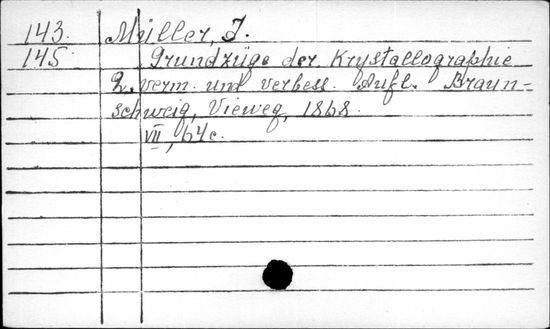 143. Müller, J.
145 Grundzüge der Krystallographie
2. verm. und verbess. Aufl. Braun-
schweig, Vieweg, 1868.
VII, 64c.